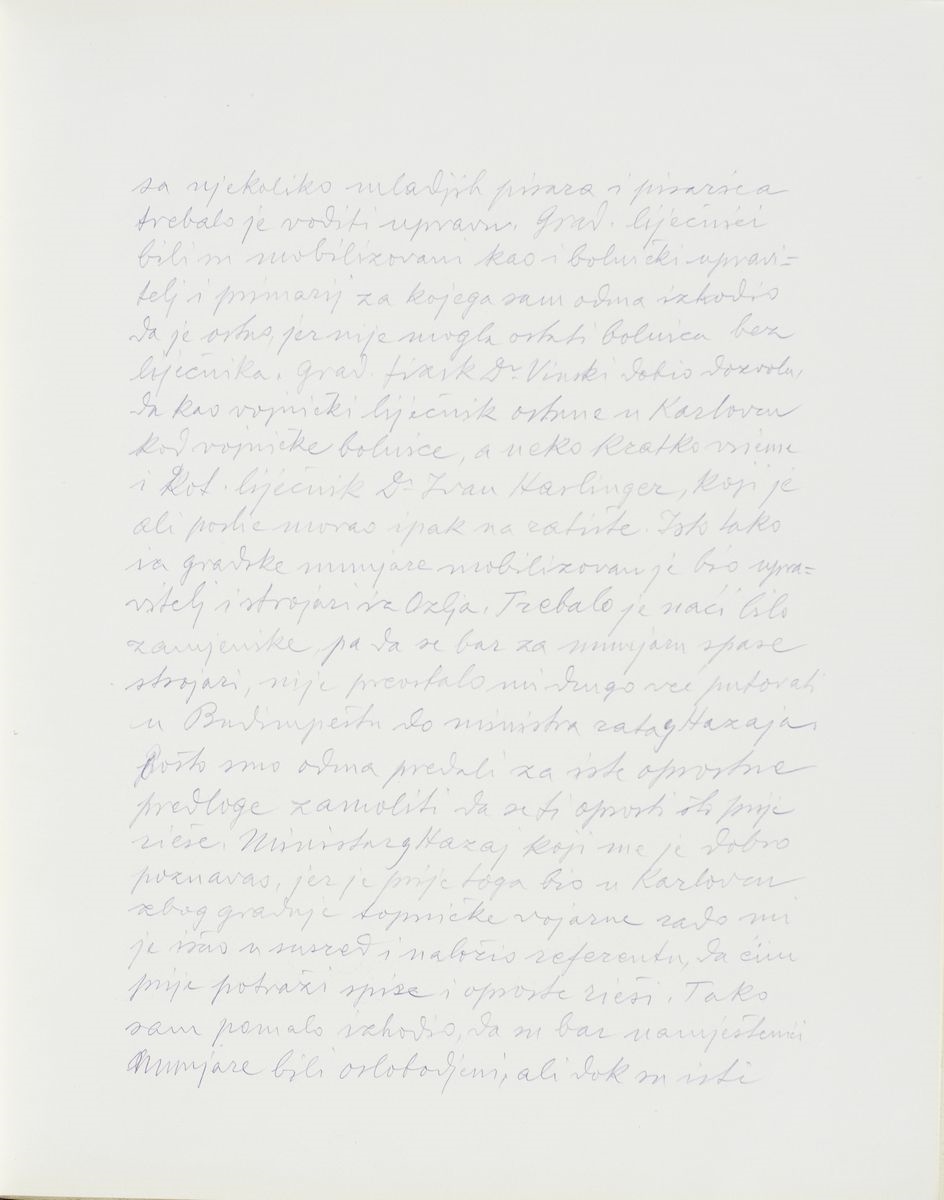 sa njekoliko mladjih pisara i pisarica
trebalo je voditi upravu. Grad. liječnici
bili su mobilizovani kao i bolnički upravi=
telj i primarij za kojega sam odma izhodio
da je ostao, jer nije mogla ostati bolnica bez
liječnika. Grad. fizik Dr. Vinski dobio dozvolu,
da kao vojnički liječnik ostane u Karlovcu
kod vojničke bolnice, a neko kratko vrieme
i Kot. liječnik Dr. Ivan Harlinger, koji je
ali poslie morao ipak na ratište. Isto tako
iz gradske munjare mobilizovan je bio upra=
vitelj i strojari iz Ozlja. Trebalo je naći bilo
zamjenike, pa da se bar za munjaru spase
strojari, nije preostalo mi drugo već putovati
u Budimpeštu do ministra rata Hazaja.
Pošto smo odma predali za iste oprostne
predloge zamoliti da se ti oprosti što prije
rieše. Ministar Hazaj koji me je dobro
poznavao, jer je prije toga bio u Karlovcu
zbog gradnje topničke vojarne rado mi
je išao u susred i naložio referentu, da čim
prije potraži spise i oproste rieši. Tako
sam pomalo izhodio, da su bar namještenici
Munjare bili oslobodjeni, ali dok su isti